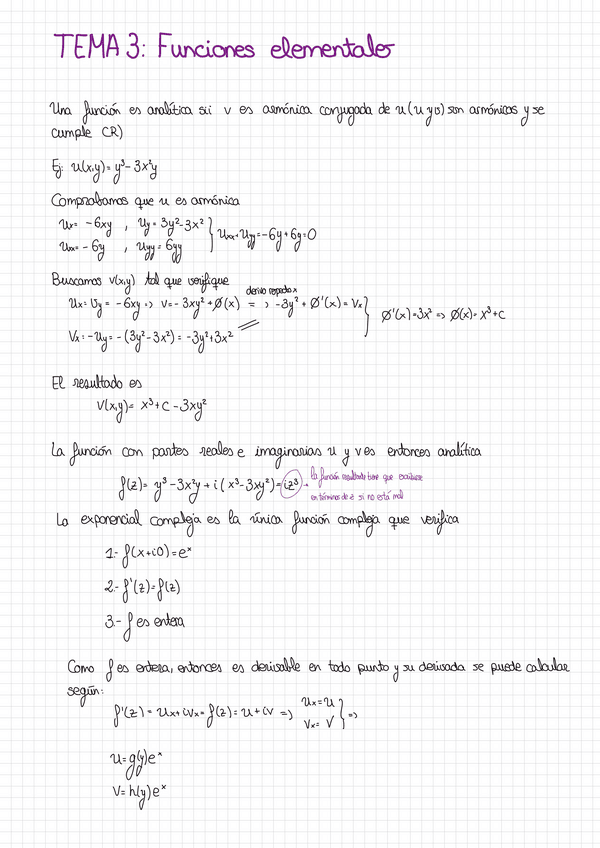 TEMA 3: Funciones elementales
Una función es analítica sii v es armónica conjugada de u (u y v) son armónicas y se
cumple CR)
Ej: u(x,y)= y³-3x²y
Comprobamos que u es armónica
ux= -6xy , uy= 3y²-3x² } uxx+uyy=-6y+6y=0
uxx= -6y , uyy= 6yy
Buscamos v(x,y) tal que verifique
derivo respecto x
ux= vy = -6xy => v=-3xy²+Ø(x) = > -3y² + Ø'(x) = vx } Ø'(x)=3x² => Ø(x)= x³+c
Vx=-uy=-(3y²-3x²) = -3y²+3x²
El resultado es
V(x,y)= x³+c-3xy²
La función con partes reales e imaginarias u y v es entonces analítica
f(z)= y³-3x²y+i(x³-3xy²)=iz³ → la función resultante tiene que escribirse
en términos de z si no está mal
La exponencial compleja es la única función compleja que verifica
1.- f(x+i0)=eˣ
2.- f'(z)=f(z)
3.- f es entera
Como f es entera, entonces es derivable en todo punto y su derivada se puede calcular
según:
f'(z)= ux+ivx= f(z)= u+iv => ux=u
vx= v } =>
u=g(y)eˣ
v=h(y)eˣ